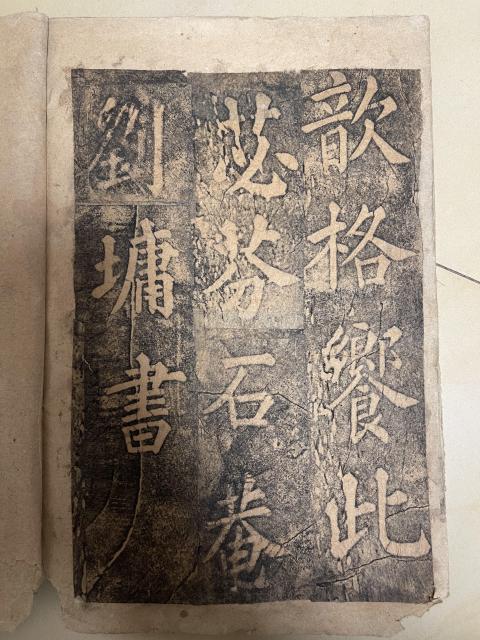 歆格饗此
苾芬石菴
劉墉書